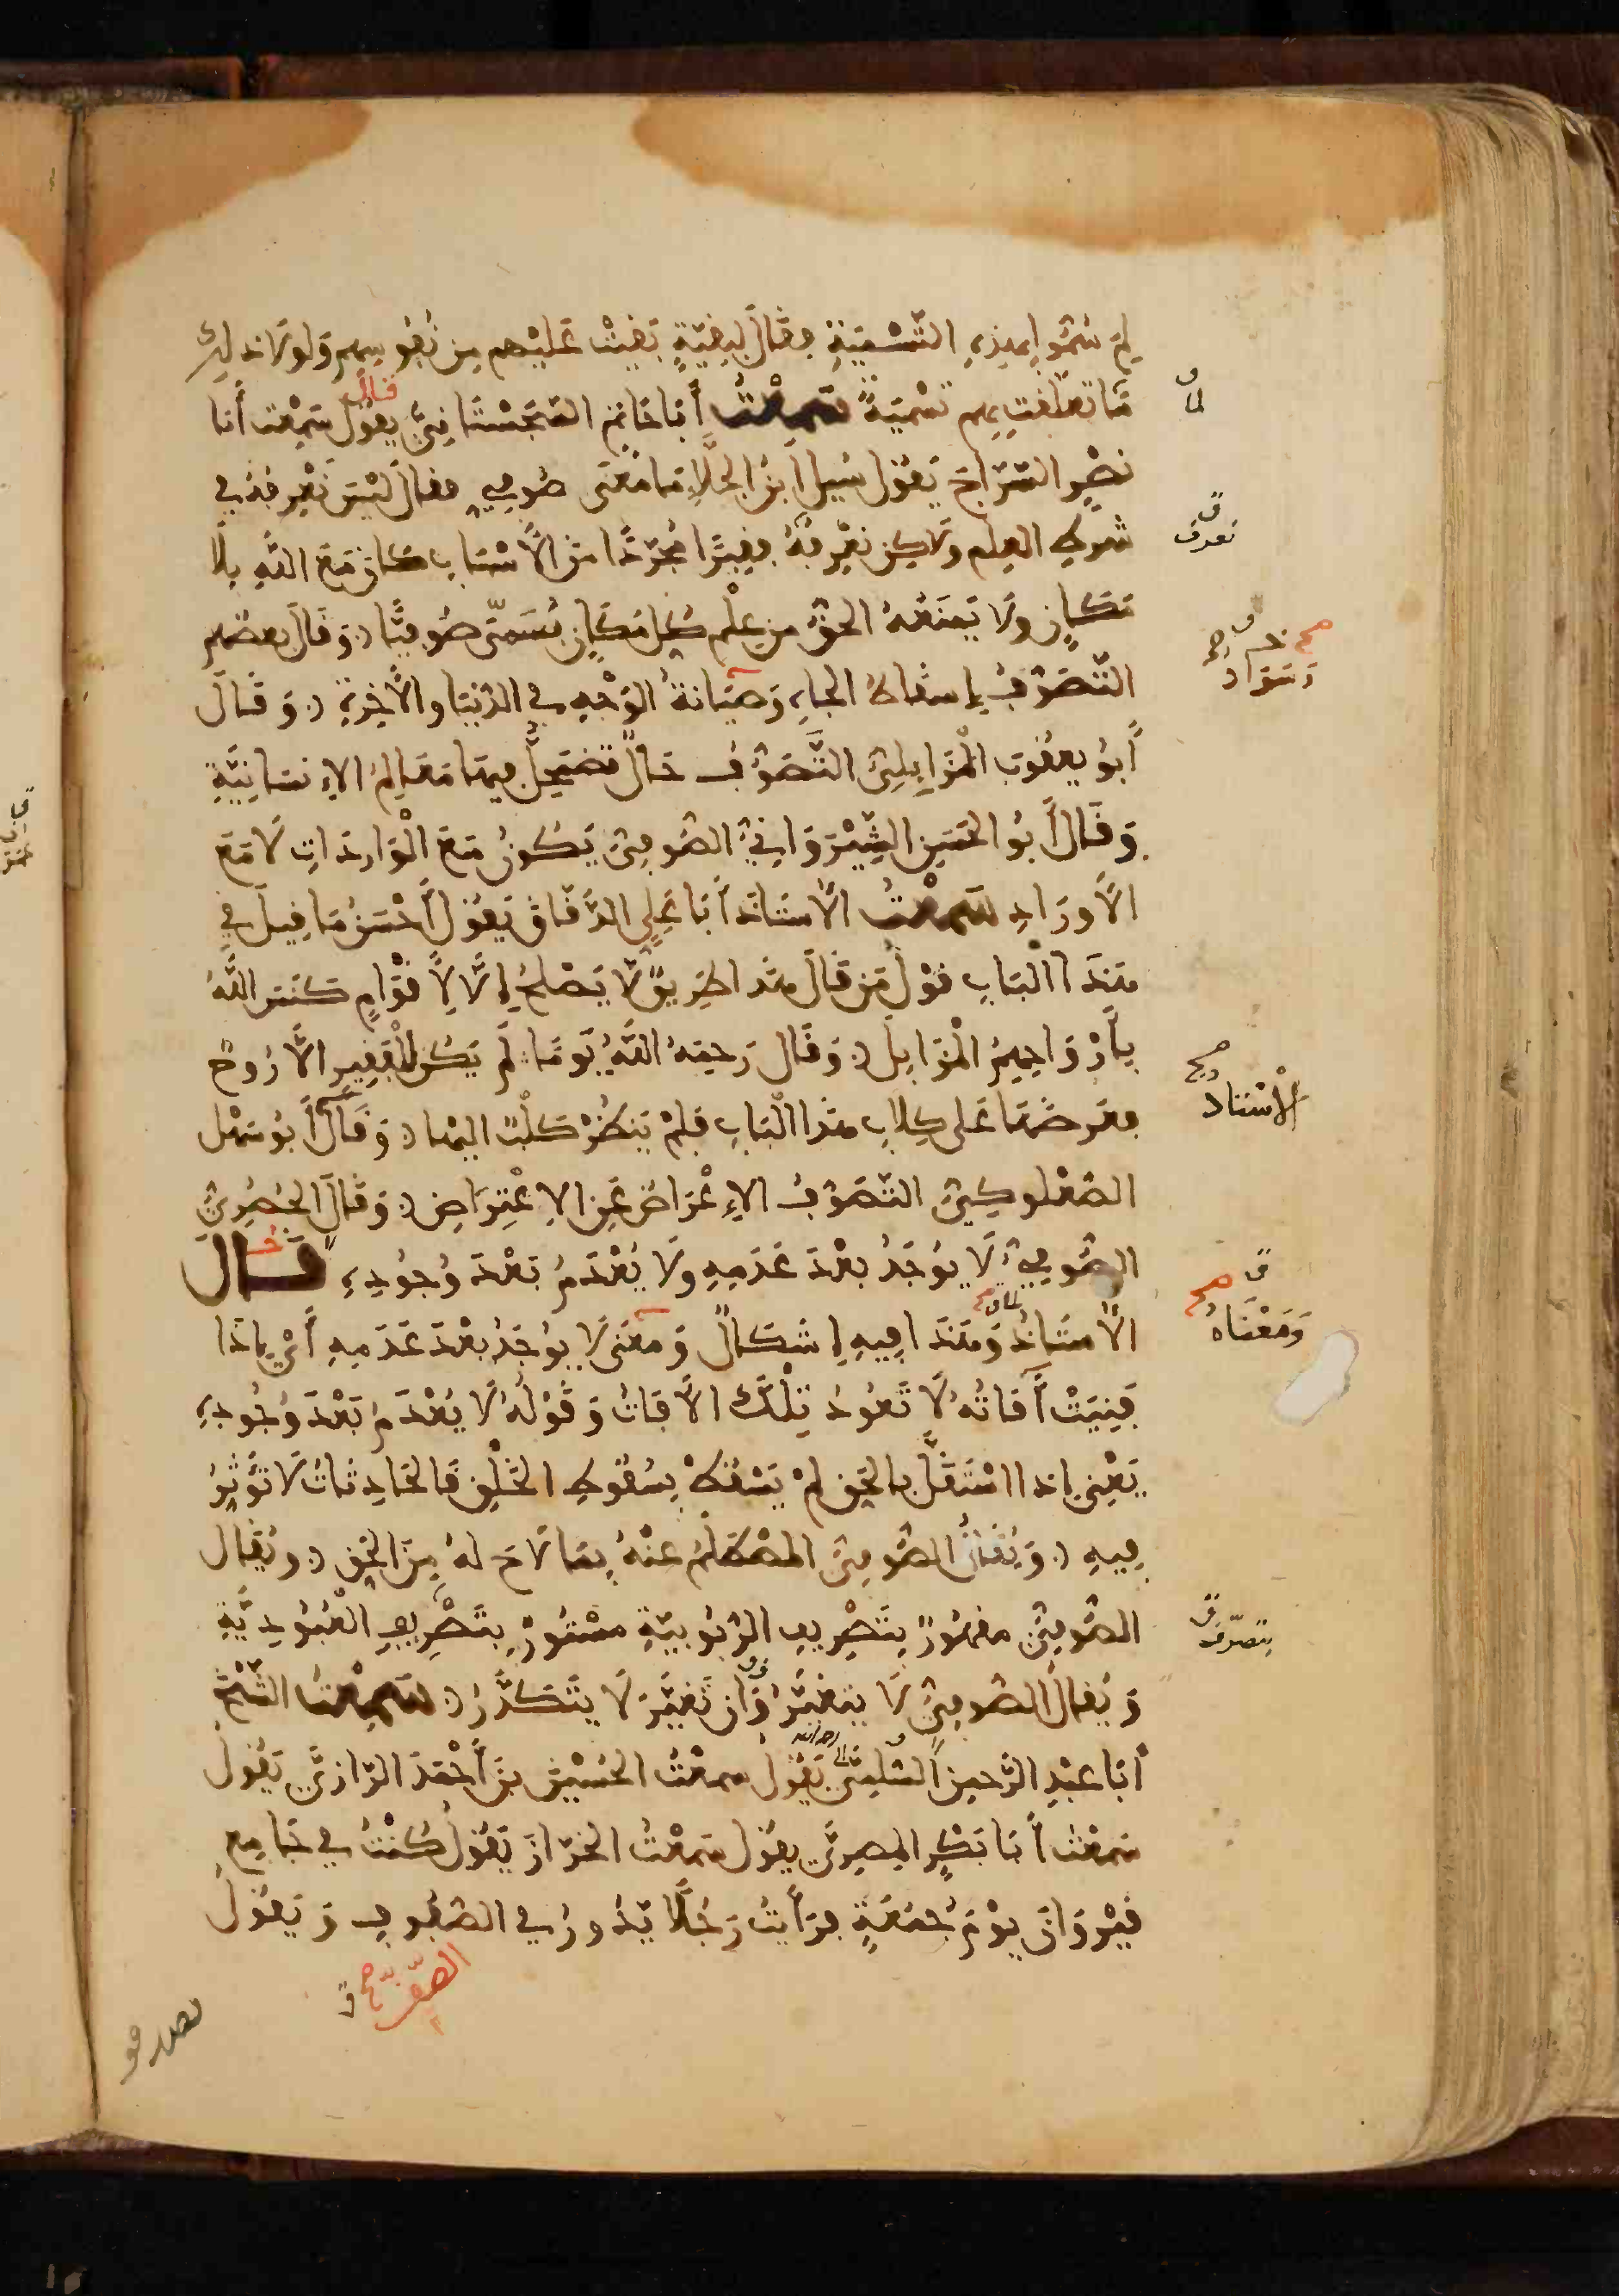 لِمَ سُمُّوا بِهٰذِهِ التَّسْمِيَةِ فقَالَ لِبَقِيَّةٍ بَقِيَتْ عَلَيْهِم مِن نُفُوسِهِم وَلَولَا ذَلِكَ
لما
مَا تَعَلَّقَت بِهِم تَسْمِيَةٌ سَمِعْتُ أَبَا حَاتِمٍ السَّجَسْتَانِيَّ يقُولُ سَمِعْت أَبَا
قال
نَصْرٍ السَّرَّاجَ يَقُول سُئِل ابنُ الجَلَّاءِ مَا مَعْنَى صُوفِي فقَالَ لَيْسَ نَعْرِفُهُ في
نعرف
شَرطِ العِلْم ولَاكِن نَعْرِفهُ فَقِيرًا مُجَرَّدًا مِنَ الأَسْبَابِ كَانَ مَعَ اللهِ بِلَا
مَكَانٍ ولَا يَمنَعُهُ الحَقُّ مِن عِلْمِ كلِّ مَكَانٍ يُسَمَّى صُوفِيًّا وَقَالَ بعضهم
التَّصَوُّفُ إِسقَاطُ الجَاهِ وَصِيَانَةُ الوَجْهِ في الدُّنيَا والأَخِرَةِ وَقَالَ
وسَوَاد
أَبُو يعقُوب الْمَزَابِلِيُّ التَّصَوُّف حَالٌ تَضمَحِلُّ فيهَا مَعَالِمُ الإِنسَانِيَّةِ
وَقَالَ أَبُو الحَسَنِ السِّيْرَوَانِيُّ الصُّوفِيُّ يَكُونُ مَعَ الْوَارِدَاتِ لَا مَعَ
الأَورَادِ سَمِعْتُ الأُستَاذَ أَبَا عَلِيٍّ الدَّقَّاقَ يَقُولُ أَحْسَنُ مَا قِيلَ فِي
هَذَا البَابِ قَوْلُ مَن قَالَ هَذَا طَرِيقٌ لَا يَصْلُحُ إِلَّا لِأَقْوَامٍ كَنَسَ اللهُ
بِأَرْوَاحِهِمُ الْمَزَابِلَ وَقَالَ رَحِمَهُ اللهُ يَومًا لَو لَم يَكُن لِلْفَقِيرِ إِلَّا رُوحٌ
الأستاذ
فعَرَضَهَا عَلى كِلَابِ هَذَا الْبَابِ لَمْ يَنظُرْ كَلْبٌ اليْهَا وَقَالَ أَبُو سَهْلٍ
الصُّعْلُوكِيُّ التَّصَوُّفُ الإِعْرَاضُ عَنِ الِاعْتِرَاضِ وَقَالَ الحُصْرِيُّ
الصُّوفِيُّ لَا يُوجَدُ بعْدَ عَدَمِهِ ولَا يُعْدَمُ بَعْدَ وُجُودِهِ قَالَ
الأُستَاذُ وَهَذَا فِيهِ إِشكَالٌ وَمعنَى لَا يُوجَدُ بعْدَ عَدَمِهِ أَيْ إِذَا
وَمَعْنَاهُ
فَنِيَتْ أَفَاتُهُ لَا تَعُودُ تِلْكَ الأَفَاتُ وَقَوْلُهُ لَا يُعْدَمُ بَعْدَ وُجُودِهِ
يَعْنِي إِذَا اشْتَغَلَ بِالحَقِّ لَمْ يَسْقُطْ بِسُقُوطِ الخَلْقِ فَالحَادِثَاتُ لَا تُؤَثِّرُ
فِيهِ وَيُقَالُ الصُّوفِيُّ المُصْطَلَمُ عَنْهُ بِمَا لَاحَ لَهُ مِنَ الحَقِّ ويُقَال
الصُّوفِيُّ مَقهُورٌ بِتَصْرِيفِ الرُّبُوبِيَّةِ مَسْتُورٌ بِتَصْرِيفِ الْعُبُودِيَّةِ
بتصرف
وَيُقَالُ الصُّوفِيُّ لَا يتَغَيَّرُ وَإِن تَغَيَّرَ لَا يتَكَدَّرُ سَمِعْتُ الشَّيْخَ
أَبَا عَبْدِ الرَّحمنِ السُّلَمِيَّ يَقُولُ سَمِعْتُ الحُسَيْنَ بنَ أَحْمَدَ الرَّازِيَّ يَقُولُ
رحمه الله
سَمِعْت أَبَا بَكْرٍ المِصرِيَّ يقُول سَمِعْتُ الخَرَّازَ يَقُولُ كُنْتُ في جَامِعِ
قَيْرَوَانَ يوْمَ جُمُعَةٍ فرَأَيتُ رَجُلًا يَدُورُ في الصُّفُوفِ وَيَقُولُ
الصف صح
تصدقوا